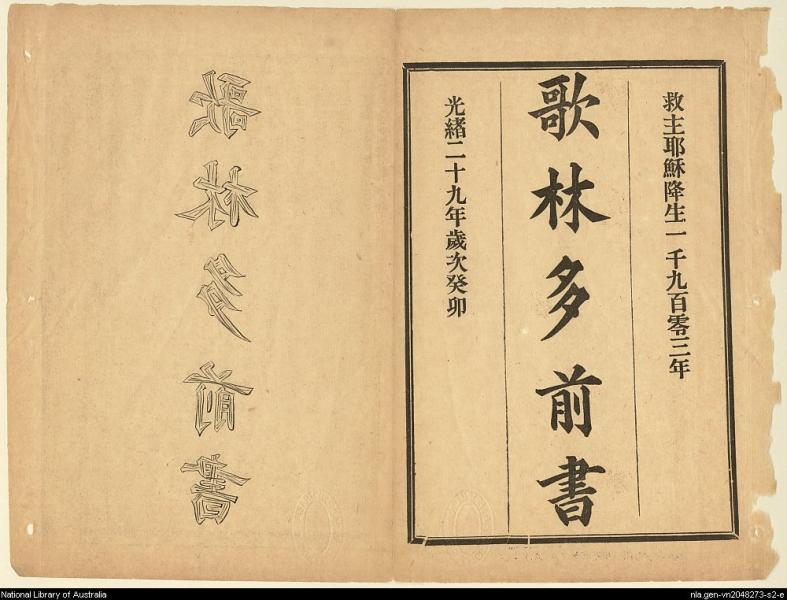 救主耶穌降生一千九百零三年
歌林多前書
光緒二十九年歲次癸卯
歌林多前書
National Library of Australia
nla.gen-vn2048273-s2-e